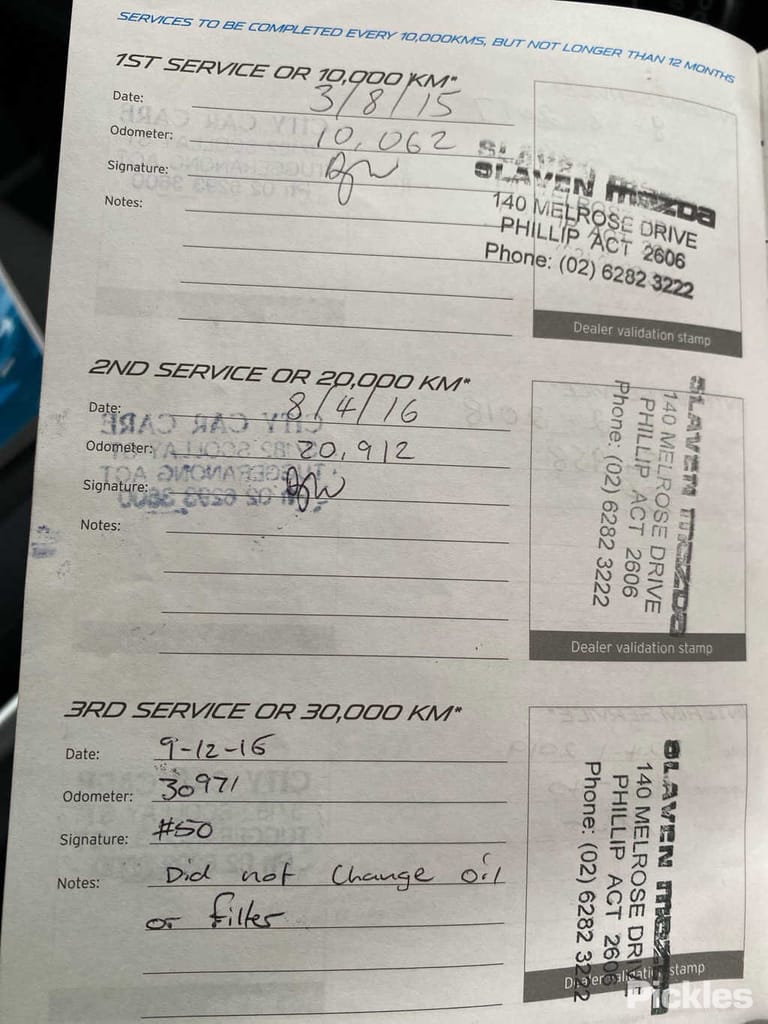 SERVICES TO BE COMPLETED EVERY 10,000KMS, BUT NOT LONGER THAN 12 MONTHS
1ST SERVICE OR 10,000 KM*
Date: 3/8/15
Odometer: 10,062
Signature:
Notes:
SLAVEN mazda
140 MELROSE DRIVE
PHILLIP ACT 2606
Phone: (02) 6282 3222
Dealer validation stamp
2ND SERVICE OR 20,000 KM*
Date: 8/4/16
Odometer: 20,912
Signature:
Notes:
SLAVEN mazda
140 MELROSE DRIVE
PHILLIP ACT 2606
Phone: (02) 6282 3222
Dealer validation stamp
3RD SERVICE OR 30,000 KM*
Date: 9-12-16
Odometer: 30971
Signature: #50
Notes: Did not change oil
or filter
SLAVEN mazda
140 MELROSE DRIVE
PHILLIP ACT 2606
Phone: (02) 6282 3222
Dealer validation stamp
Pickles